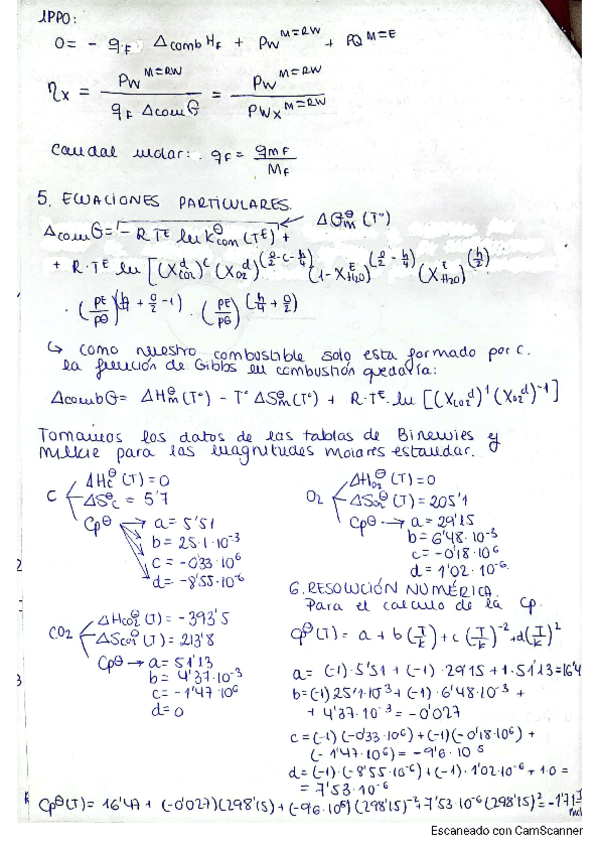 1PPO:
0 = - q_F Δcomb H_F + P_W^{M=RW} + P_Q^{M=E}
η_x = P_W^{M=RW} / (q_F Δcom G) = P_W^{M=RW} / P_Wx^{M=RW}
Caudal molar: q_F = q_mF / M_F
5. ECUACIONES PARTICULARES.
Δcom G = - R T^E ln K^θ_con (T^E) + ← ΔG^θ_m (T°)
+ R·T^E ln [(X^d_CO2)^c (X^d_O2)^(o/2 - c - h/4) (1 - X^E_H2O)^(o/2 - h/4) (X^E_H2O)^(h/2)
· (P^E/P^θ)^(h/4 + o/2 - 1) · (P^E/P^θ)^(h/4 + o/2)
↳ como nuestro combustible solo esta formado por c.
la función de Gibbs en combustión quedaría:
Δcomb G = ΔH^θ_m (T°) - T° ΔS^θ_m (T°) + R·T^E. ln [(X_CO2^d)^1 (X_O2^d)^-1]
Tomamos los datos de las tablas de Binewies y
Milkie para las magnitudes molares estandar.
C
ΔH_c^θ (T) = 0
ΔS^θ_c = 5'7
Cp^θ → a = 5'51
b = 25·1·10^-3
c = -0'33·10^6
d = -8'55·10^-6
O2
ΔH_O2^θ (T) = 0
ΔS_O2^θ (T) = 205'1
Cp^θ → a = 29'15
b = 6'48·10^-3
c = -0'18·10^6
d = 1'02·10^-6
CO2
ΔH_CO2^θ (T) = -393'5
ΔS_CO2^θ (T) = 213'8
Cp^θ → a = 51'13
b = 4'37·10^-3
c = -1'47·10^6
d = 0
6. RESOLUCIÓN NUMÉRICA.
Para el calculo de la Cp.
Cp^θ(T) = a + b (T/K) + c (T/K)^-2 + d (T/K)^2
a = (-1)·5'51 + (-1)·29'15 + 1·51'13 = 16'4
b = (-1) 25'1·10^-3 + (-1)·6'48·10^-3 +
+ 4'37·10^-3 = -0'027
c = (-1)(-0'33·10^6) + (-1)(-0'18·10^6) +
(-1'47·10^6) = -9'6·10^5
d = (-1)·(-8'55·10^-6) + (-1)·1'02·10^-6 + 1·0 =
= 7'53·10^-6
Cp^θ(T) = 16'47 + (-0'027)(298'15) + (-9'6·10^5)(298'15)^-2 + 7'53·10^-6 (298'15)^2 = -1'71
Escaneado con CamScanner